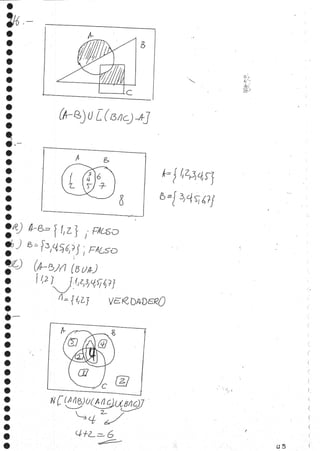 A
B
C
(A-B)∪[(B∩C)-A]
A B
1 3 6
2 4 7
5
8
A={1,2,3,4,5}
B={3,4,5,6,7}
A-B={1,2} ; FALSO
B={3,4,5,6,7} ; FALSO
(A-B)∩(B∪A)
{1,2} {1,2,3,4,5,6,7}
∩={1,2} VERDADERO
A
B
C
2
N[(A∩B)∪(A∩C)∪(B∩C)]
→4 2
4+2=6